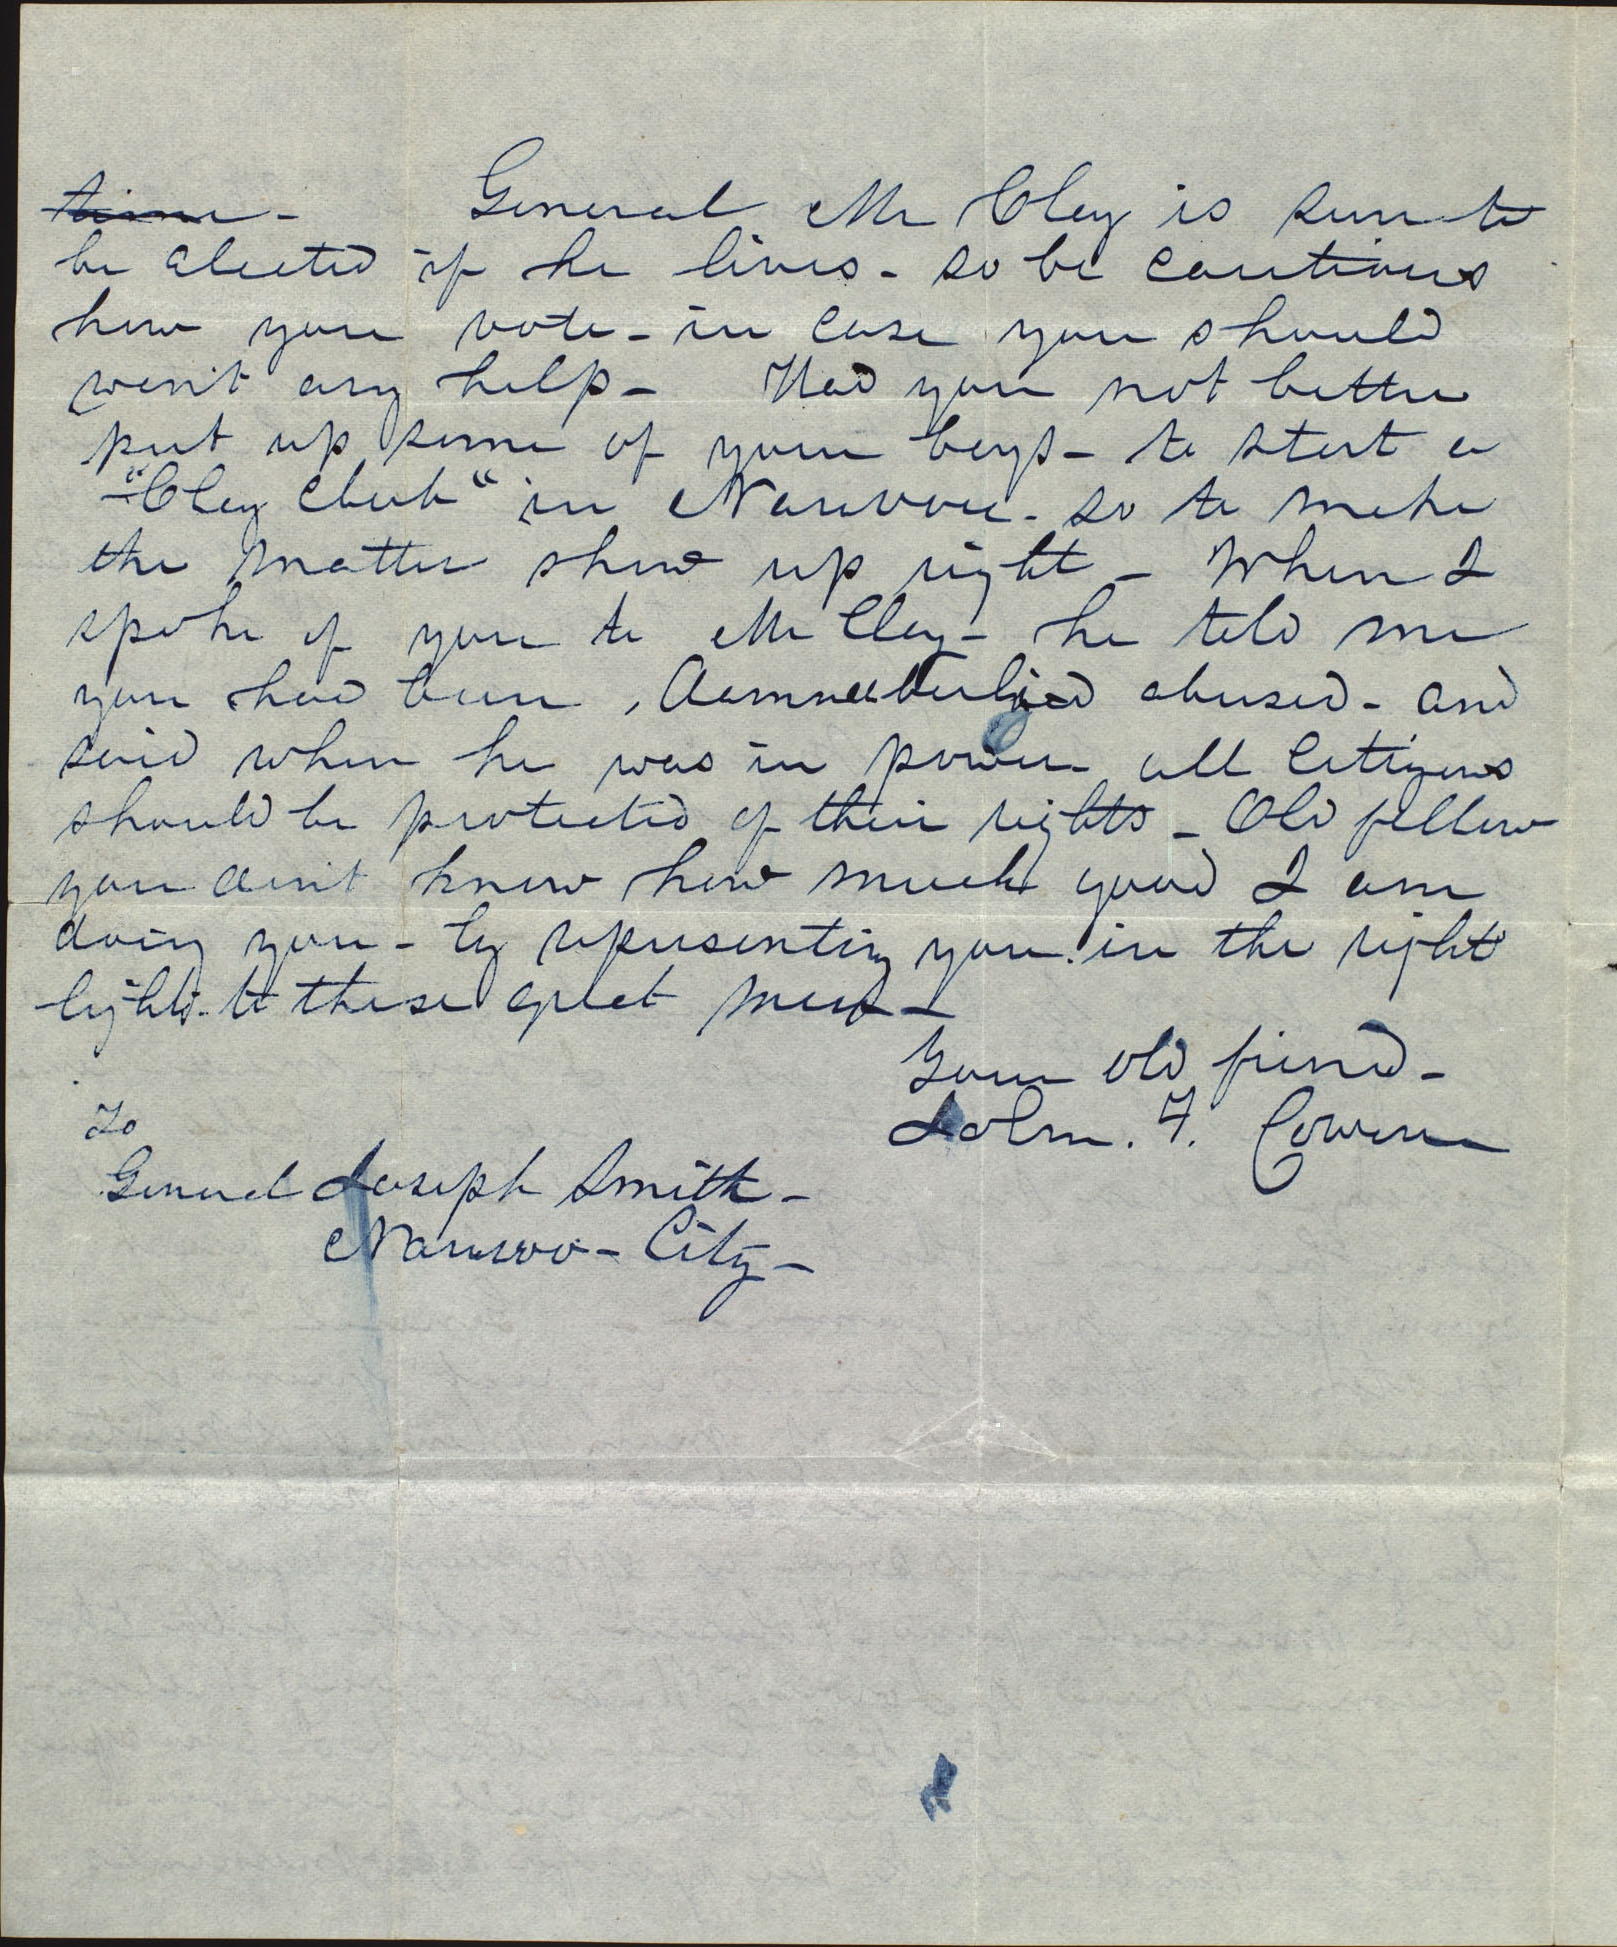 time - General Mr Clay is sure to
be elected if he lives - so be cautious
how you vote - in case you should
want any help - Had you not better
put up some of your boys - to start a
"Clay Club" in Nauvoo - so to make
the matter show up right - When I
spoke of you to Mr Clay - he told me
you had been, abused - and
said when he was in power - all Citizens
should be protected of their rights - Old fellow
you aint know how much good I am
doing you - by representing you in the right
light - to these great men -
Your old friend -
John. F. Cowan
To
General Joseph Smith -
Nauvoo - City -